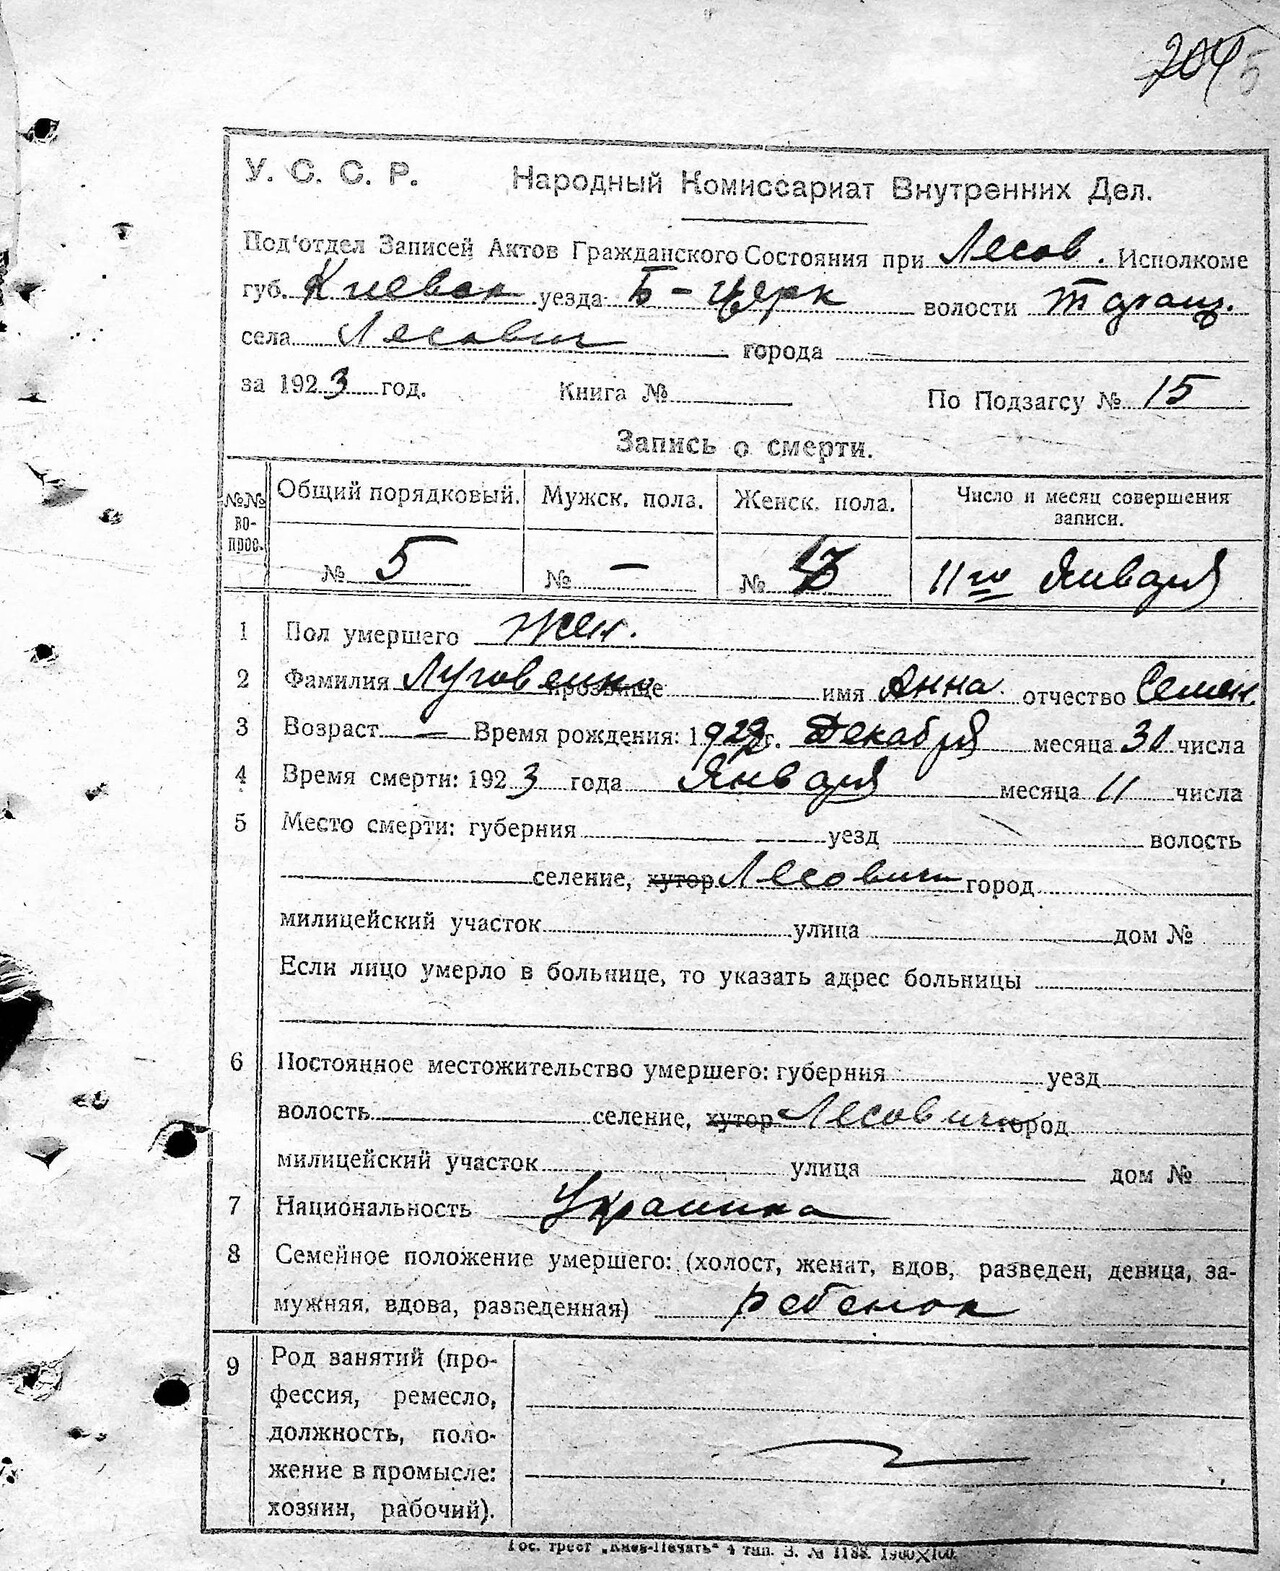 204 5
У. С. С. Р. Народный Комиссариат Внутренних Дел.
Под'отдел Записей Актов Гражданского Состояния при Лесов. Исполкоме
губ. Киевск уезда Б-Церк волости Таращ.
села Лесович города
за 1923 год. Книга № По Подзагсу № 15
Запись о смерти.
№№ вопрос. Общий порядковый. Мужск. пола. Женск. пола. Число и месяц совершения записи.
№ 5 № — № 3 11го Января
1 Пол умершего Жен.
2 Фамилия Луговенко прозвище имя Анна отчество Семен.
3 Возраст — Время рождения: 1922 г. Декабря месяца 30 числа
4 Время смерти: 1923 года Января месяца 11 числа
5 Место смерти: губерния уезд волость
селение, хутор Лесовичи город
милицейский участок улица дом №
Если лицо умерло в больнице, то указать адрес больницы
6 Постоянное местожительство умершего: губерния уезд
волость селение, хутор Лесовичи город
милицейский участок улица дом №
7 Национальность Украинка
8 Семейное положение умершего: (холост, женат, вдов, разведен, девица, за-
мужняя, вдова, разведенная) ребенок
9 Род занятий (про-
фессия, ремесло,
должность, поло-
жение в промысле:
хозяин, рабочий).
Гос. трест „Киев-Печать" 4 тип. З. № 1188. 1900×100.